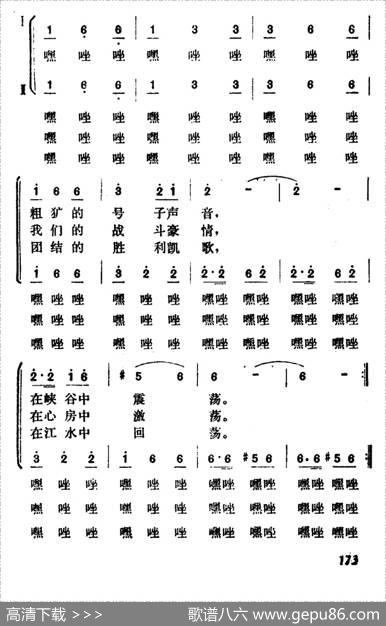 I 1 6 6 | 1 3 3 | 3 6 6 |
嘿 唑 唑 嘿 唑 唑 嘿 唑 唑
II 1 6 6 | 1 3 3 | 3 6 6 |
嘿 唑 唑 嘿 唑 唑 嘿 唑 唑
嘿 唑 唑 嘿 唑 唑 嘿 唑 唑
嘿 唑 唑 嘿 唑 唑 嘿 唑 唑
1 6 6 | 3 2 1 | 2 - | 2 - |
粗 犷 的 号 子 声 音,
我 们 的 战 斗 豪 情,
团 结 的 胜 利 凯 歌,
1 6 6 | 3 2 2 | 2·2 6 2 | 2·2 6 2 |
嘿 唑 唑 嘿 唑 唑 嘿唑 嘿唑 嘿唑 嘿唑
嘿 唑 唑 嘿 唑 唑 嘿唑 嘿唑 嘿唑 嘿唑
嘿 唑 唑 嘿 唑 唑 嘿唑 嘿唑 嘿唑 嘿唑
2·2 1 6 | #5 6 | 6 - | 6 - :||
在峡 谷中 震 荡。
在心 房中 激 荡。
在江 水中 回 荡。
3 2 2 | 1 6 6 | 6·6 #5 6 | 6·6 #5 6 :||
嘿 唑 唑 嘿 唑 唑 嘿唑 嘿唑 嘿唑 嘿唑
嘿 唑 唑 嘿 唑 唑 嘿唑 嘿唑 嘿唑 嘿唑
嘿 唑 唑 嘿 唑 唑 嘿唑 嘿唑 嘿唑 嘿唑
173
高清下载 >>> 歌谱八六 www.gepu86.com